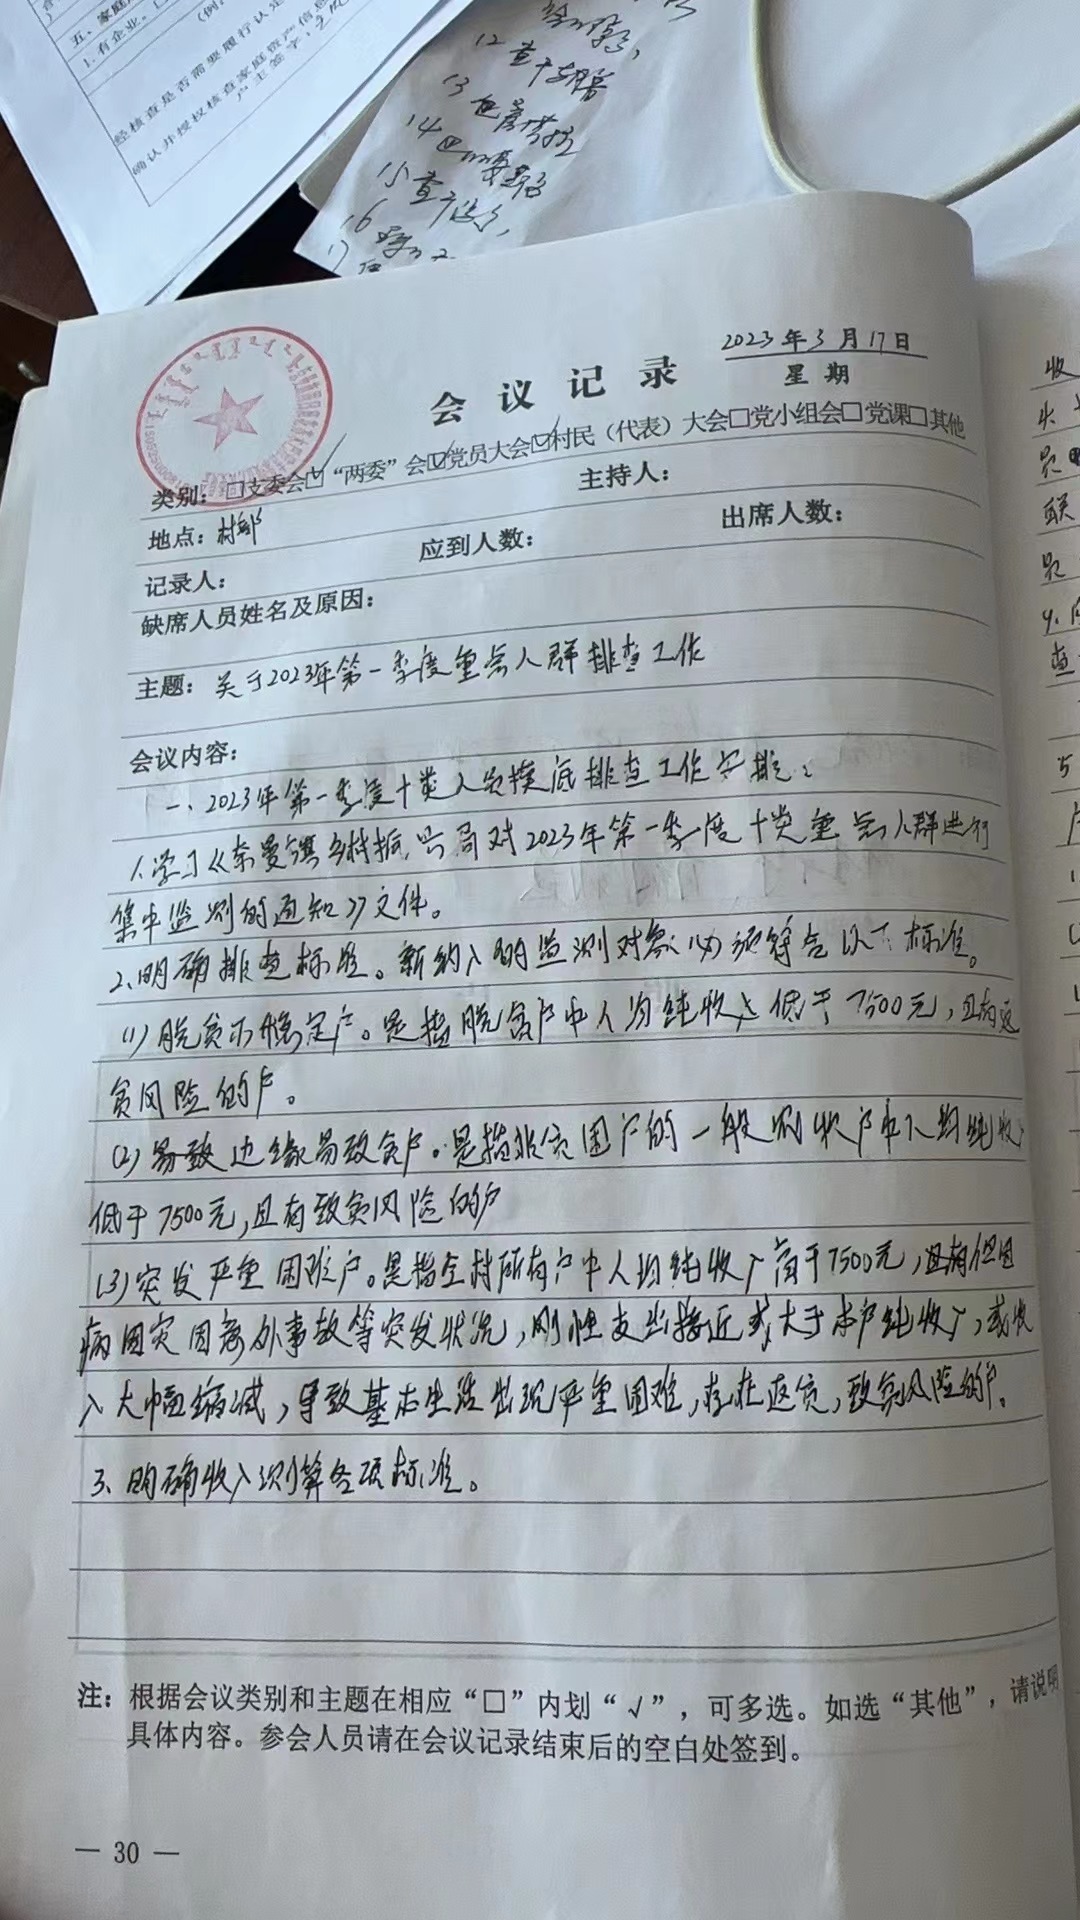 五、家庭
1.有企业、
(例
经核查是否需要履行认定
确认并授权核查家庭资产信息
户主签字：
12
13
14
15
16
17
2023年3月17日
会议记录
星期
类别：□支委会☑“两委”会☑党员大会☑村民（代表）大会□党小组会□党课□其他
地点：村部
主持人：
记录人：
应到人数：
出席人数：
缺席人员姓名及原因：
主题：关于2023年第一季度重点人群排查工作
会议内容：
一、2023年第一季度十类人员摸底排查工作安排：
1.学习《奈曼旗乡村振兴局对2023年第一季度十类重点人群进行
集中监测的通知》文件。
2.明确排查标准。新纳入的监测对象必须符合以下标准。
(1)脱贫不稳定户。是指脱贫户中人均纯收入低于7500元，且有返
贫风险的户。
(2)易致边缘易致贫户。是指非贫困户的一般农户中人均纯收入
低于7500元，且有致贫风险的户
(3)突发严重困难户。是指全村所有户中人均纯收入高于7500元，且有但因
病因灾因意外事故等突发状况，刚性支出接近或大于本户纯收入，或收
入大幅缩减，导致基本生活出现严重困难，存在返贫，致贫风险的户。
3、明确收入测算各项标准。
注：根据会议类别和主题在相应“□”内划“√”，可多选。如选“其他”，请说明
具体内容。参会人员请在会议记录结束后的空白处签到。
— 30 —